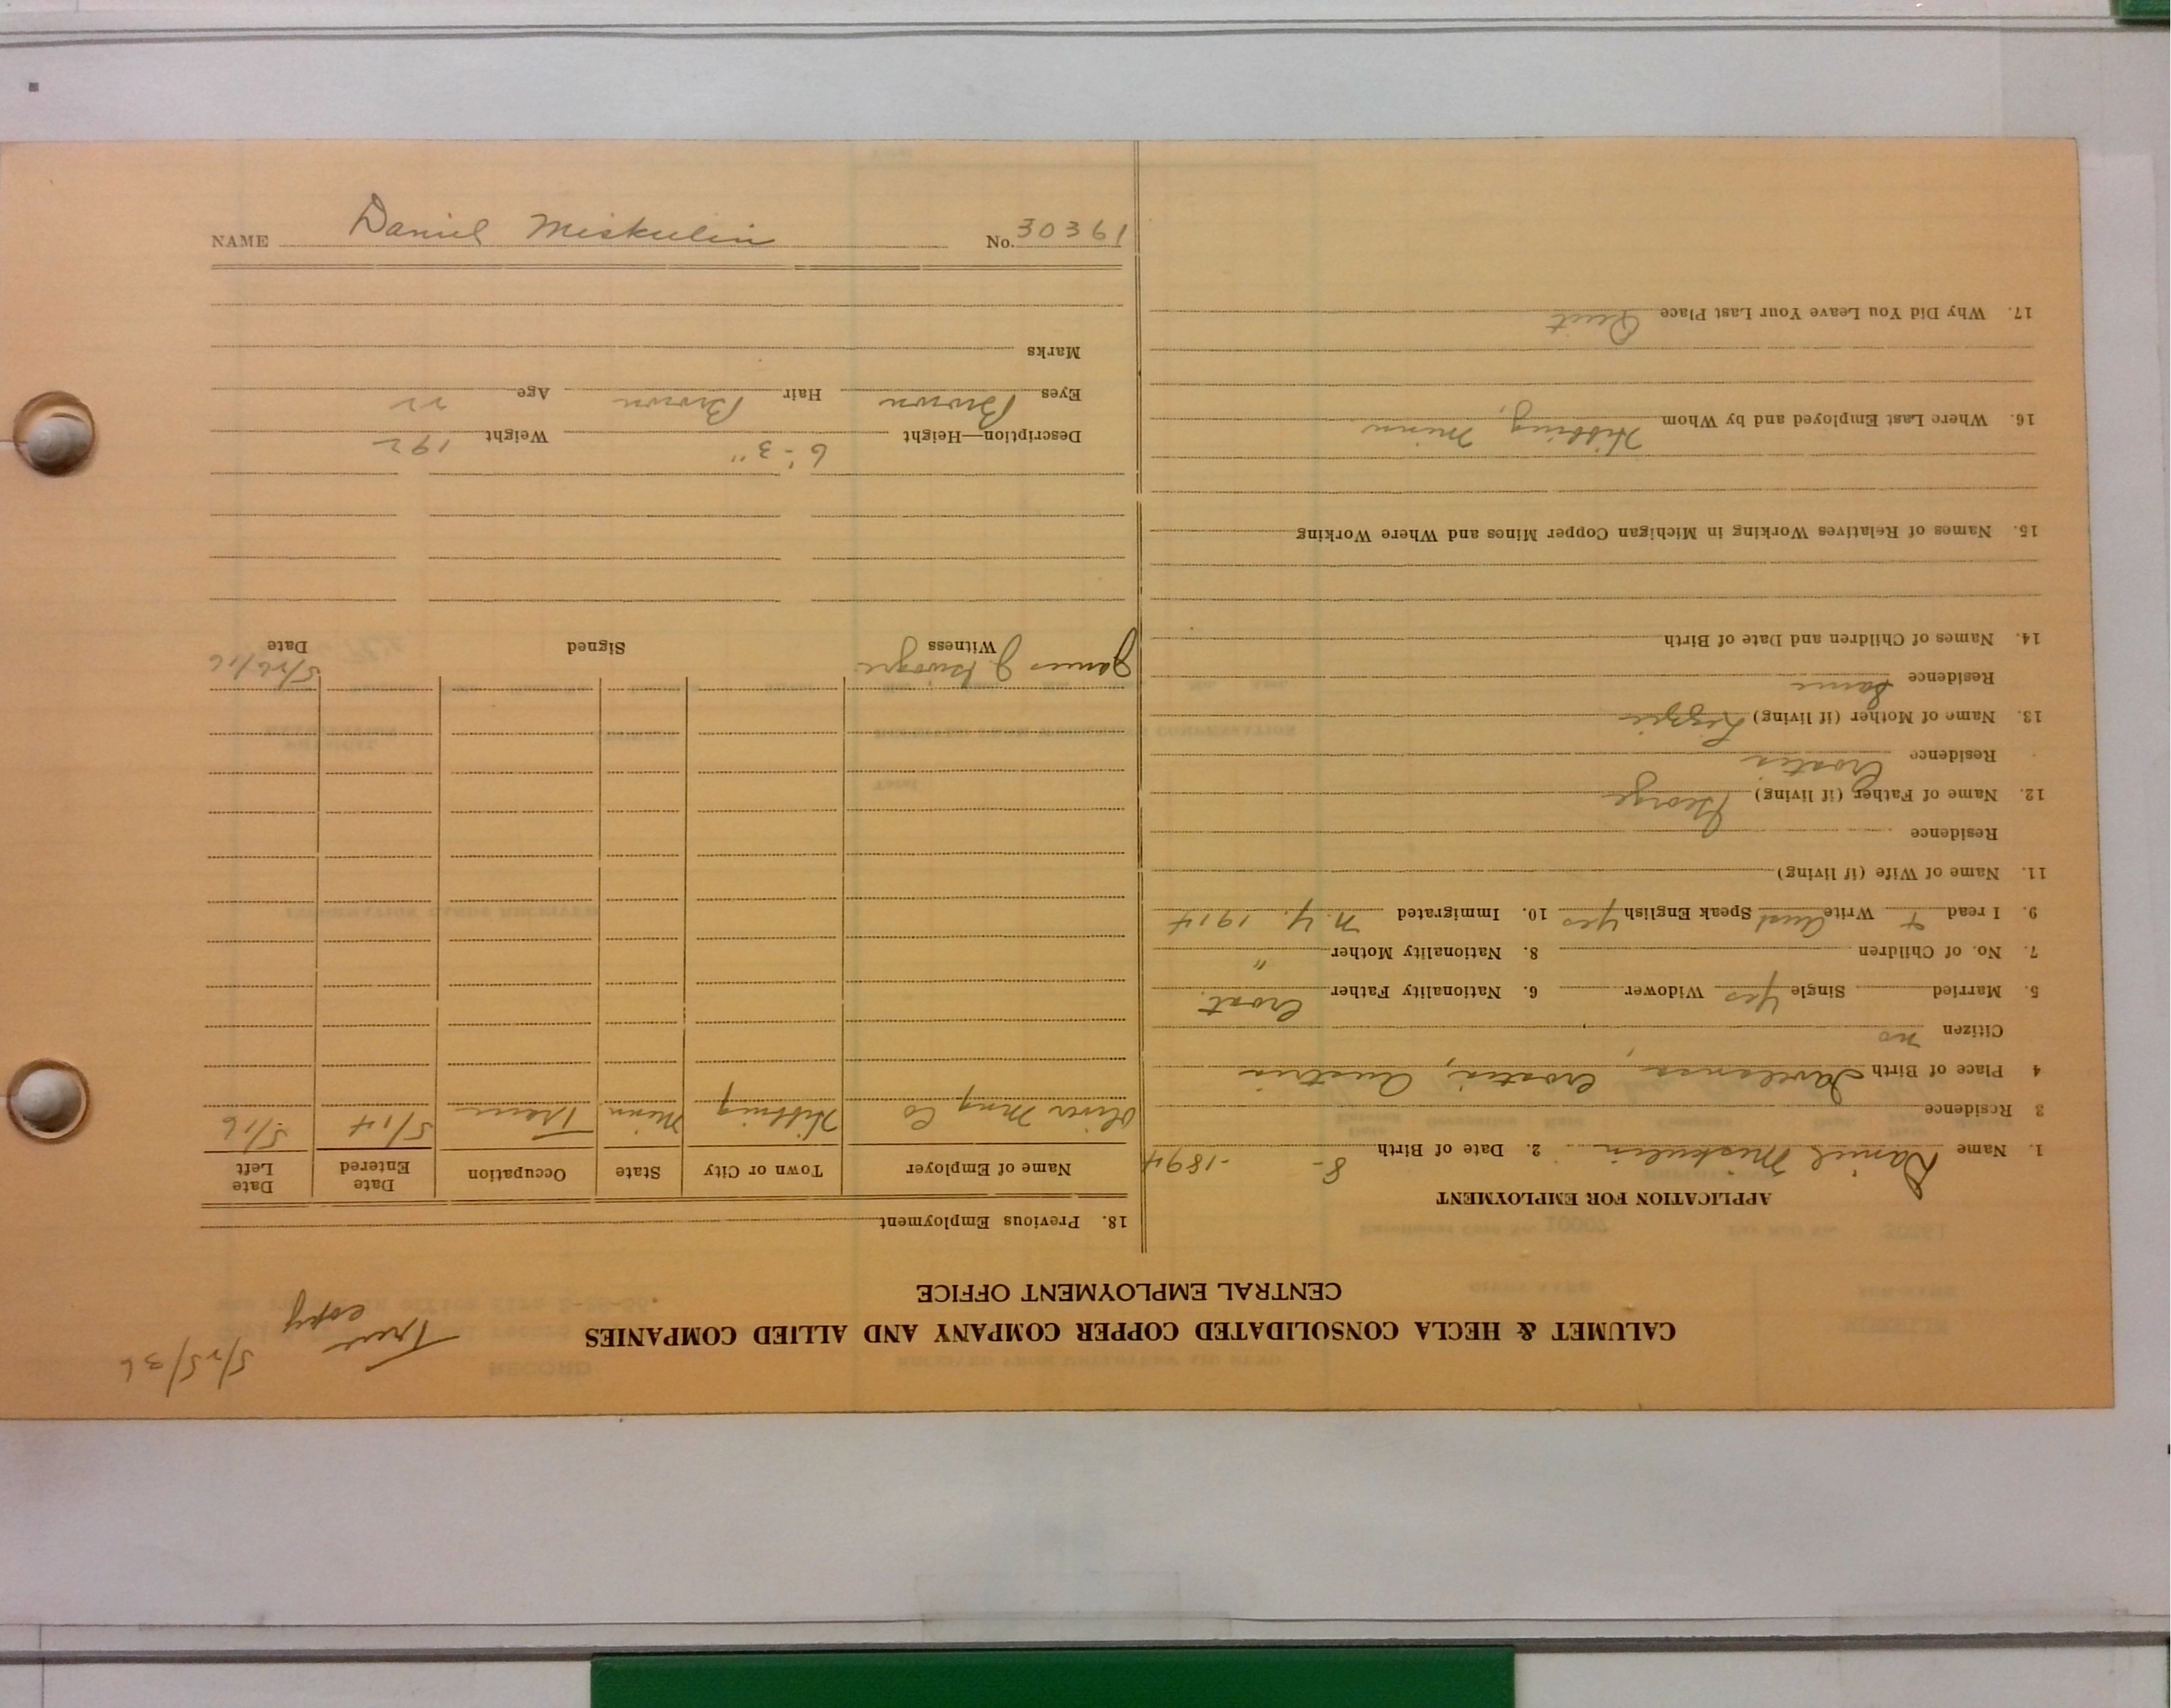 CALUMET & HECLA CONSOLIDATED COPPER COMPANY AND ALLIED COMPANIES
CENTRAL EMPLOYMENT OFFICE
True copy
5/25/36
APPLICATION FOR EMPLOYMENT
1. Name Daniel Miskulin 2. Date of Birth 8- -1894
3 Residence
4 Place of Birth Croatia, Austria
Citizen no
5. Married Single Yes Widower 6. Nationality Father Croat.
7. No. of Children 8. Nationality Mother "
9. I read + Write Aust Speak English Yes 10. Immigrated N.Y. 1914
11. Name of Wife (if living)
Residence
12. Name of Father (if living) George
Residence Croatia
13. Name of Mother (if living) Lizzie
Residence Same
14. Names of Children and Date of Birth
15. Names of Relatives Working in Michigan Copper Mines and Where Working
16. Where Last Employed and by Whom Hibbing, Minn
17. Why Did You Leave Your Last Place Quit
18. Previous Employment
Name of Employer Town or City State Occupation Date Entered Date Left
Oliver Mng Co Hibbing Minn Tram 5/14 5/16
James J.
5/26/16
Witness Signed Date
Description—Height 6'-3" Weight 192
Eyes Brown Hair Brown Age 22
Marks
NAME Daniel Miskulin No. 30361